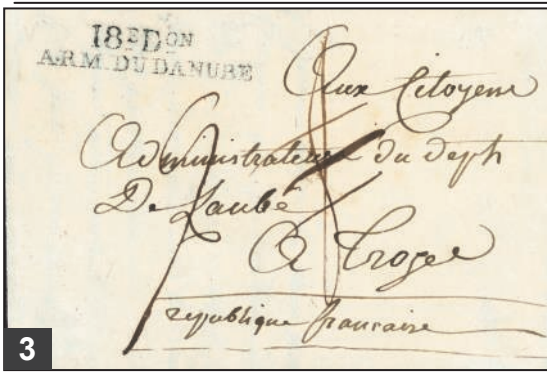 18E DON
ARM. DU DANUBE
Aux Citoyens
Administrateurs du deph
De Laube
A Troyes
republique francaise
3